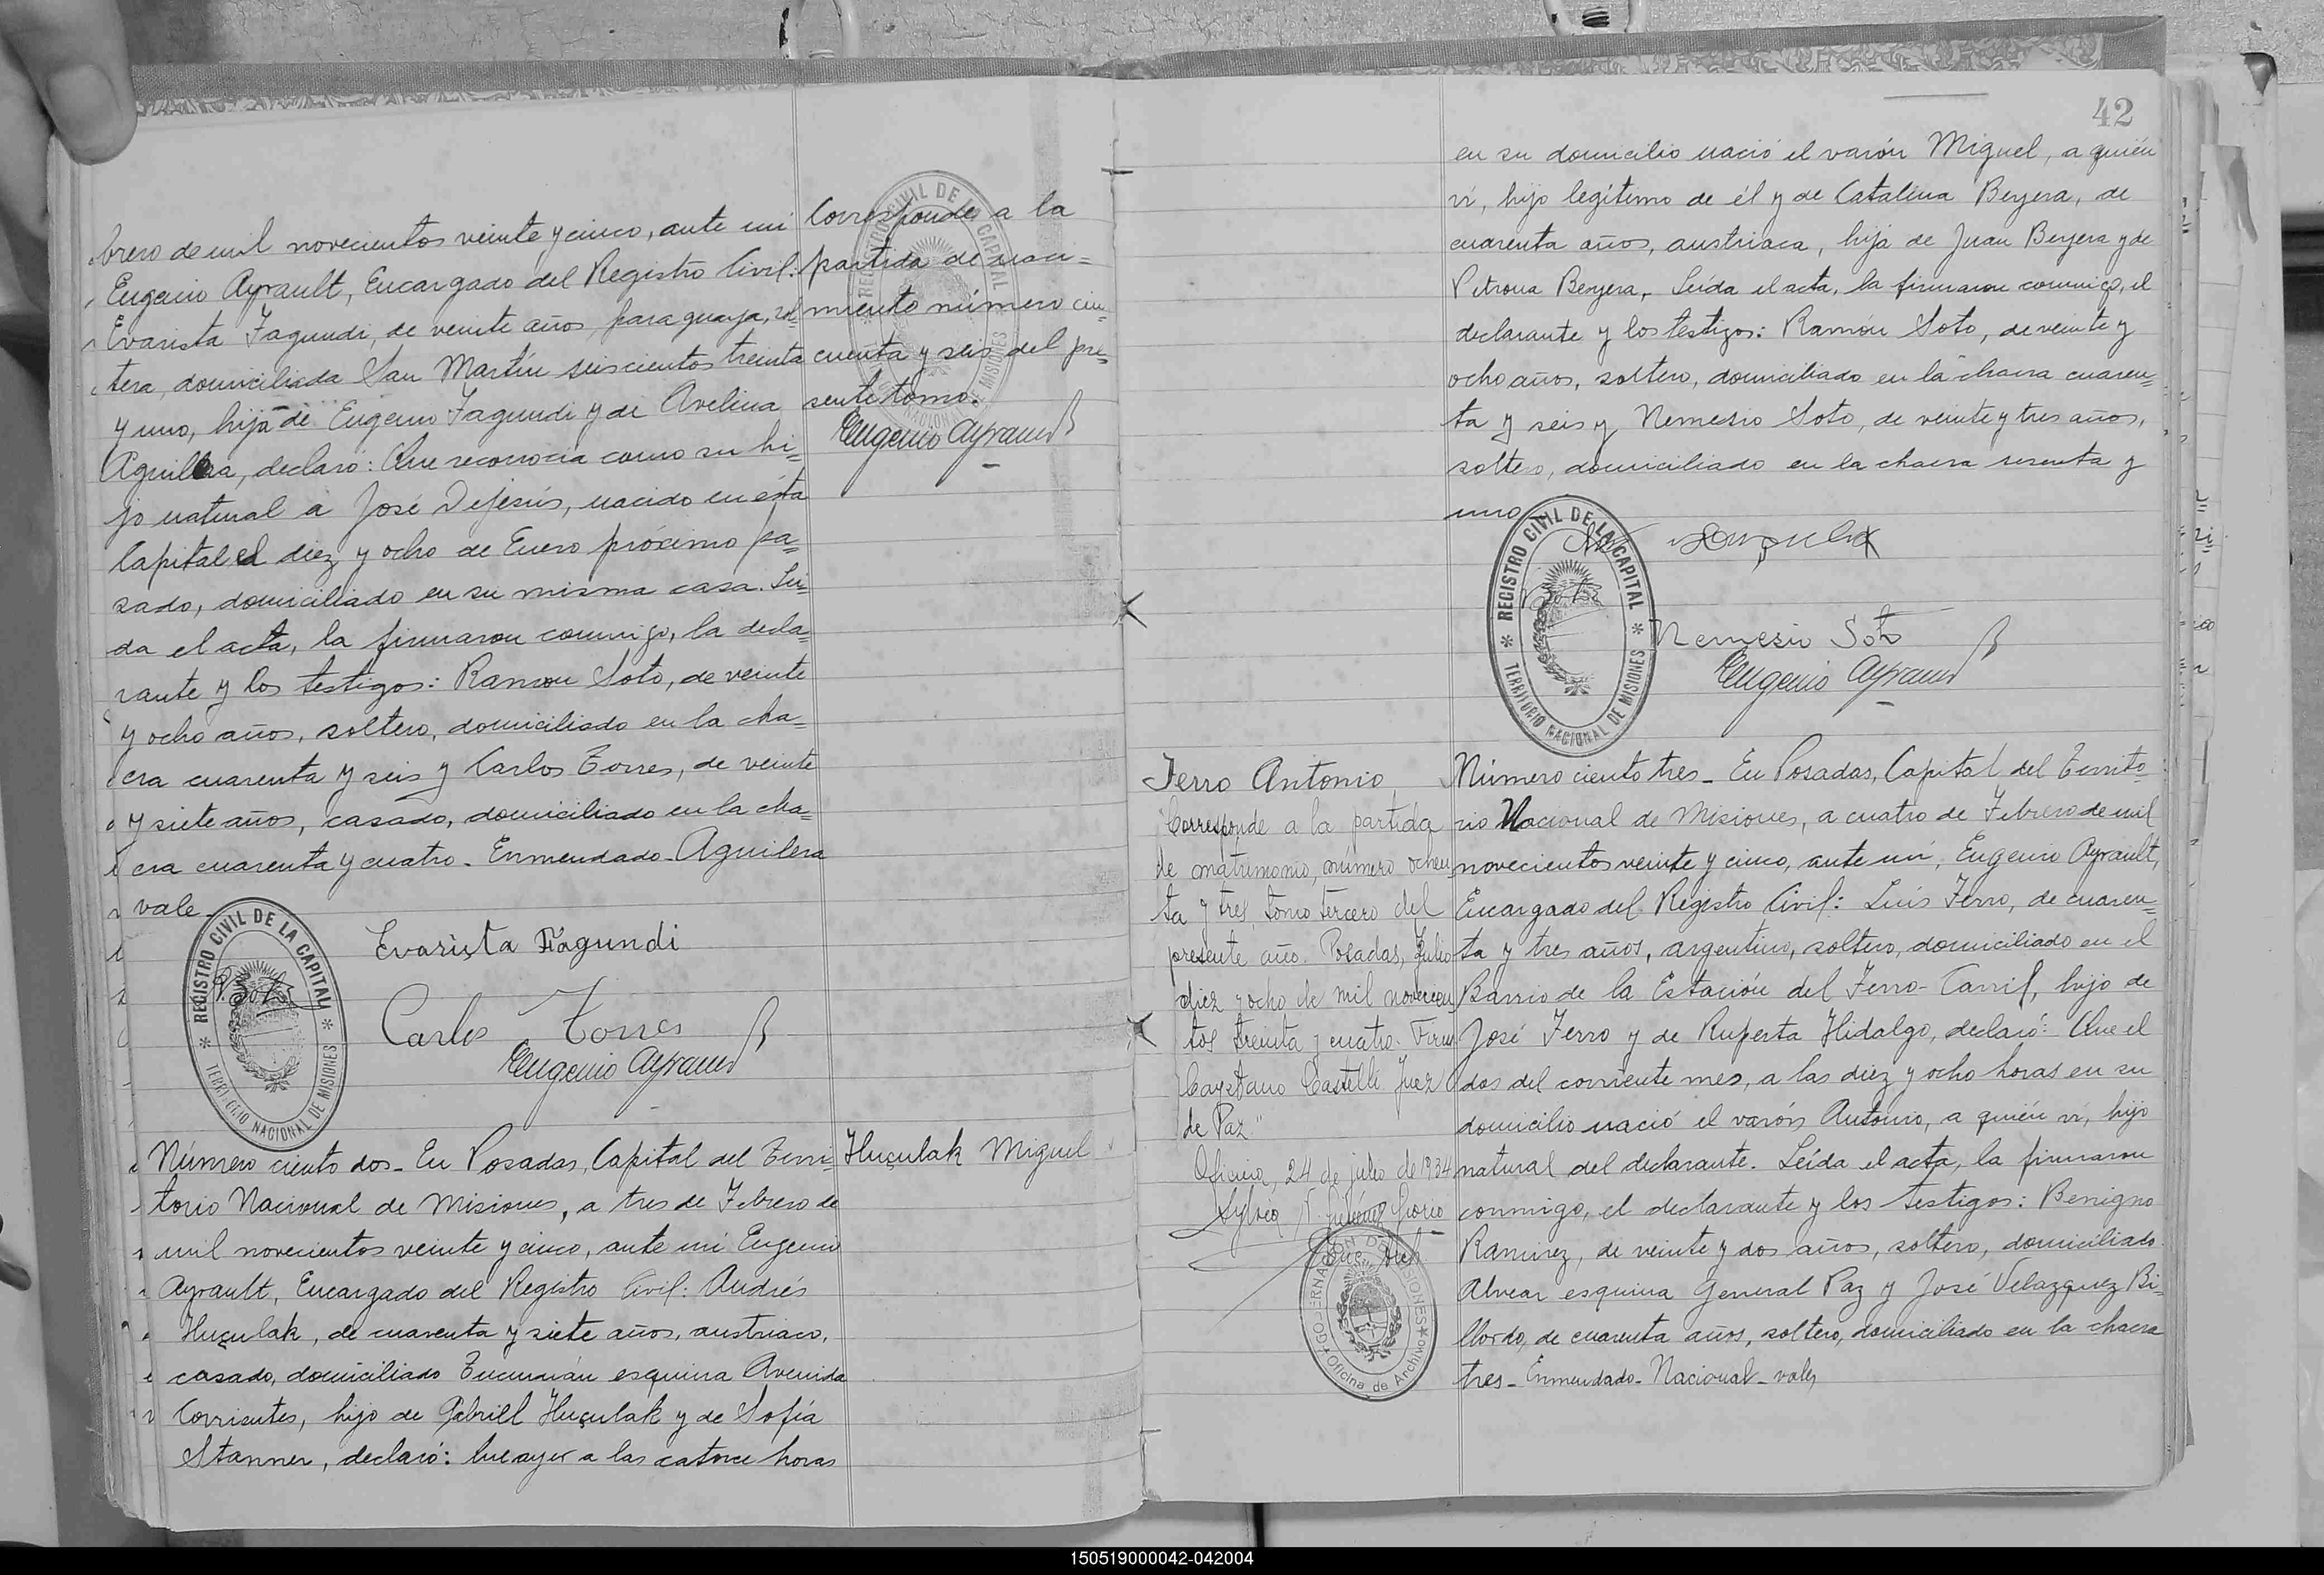 brero de mil novecientos veinte y cinco, ante mi
Eugenio Ayrault, Encargado del Registro Civil:
Evarista Fagundi, de veinte años, paraguaya, sol=
tera, domiciliada San Martín seiscientos treinta
y uno, hija de Eugenio Fagundi y de Avelina
Aguilera, declaró: Que reconocia como su hi=
jo natural a José Dejesús, nacido en ésta
Capital el diez y ocho de Enero próximo pa=
sado, domiciliado en su misma casa. Leí=
da el acta, la firmaron conmigo, la decla=
rante y los testigos: Ramon Soto, de veinte
y ocho años, soltero, domiciliado en la cha=
cra cuarenta y seis y Carlos Torres, de veinte
y siete años, casado, domiciliado en la cha=
cra cuarenta y cuatro. Enmendado-Aguilera
vale.
REGISTRO CIVIL DE LA CAPITAL
TERRITORIO NACIONAL DE MISIONES
R. Soto
Evarista Fagundi
Carlos Torres
Eugenio Ayrault
Corresponde a la
partida de naci=
miento número cin=
cuenta y seis del pre=
sente tomo.
Eugenio Ayrault
REGISTRO CIVIL DE LA CAPITAL
Huçulak Miguel
Número ciento dos_ En Posadas, Capital del Terri=
torio Nacional de Misiones, a tres de Febrero de
mil novecientos veinte y cinco, ante mi Eugenio
Ayrault, Encargado del Registro Civil: Andrés
Huçulak, de cuarenta y siete años, austriaco,
casado, domiciliado Tucumán esquina Avenida
Corrientes, hijo de Gabriel Huçulak y de Sofía
Stanner, declaró: Que ayer a las catorce horas
42
en su domicilio nació el varón Miguel, a quién
ví, hijo legítimo de él y de Catalina Beryera, de
cuarenta años, austriaca, hija de Juan Beryera y de
Petrona Beryera. Leída el acta, la firmaron conmigo, el
declarante y los testigos: Ramón Soto, de veinte y
ocho años, soltero, domiciliado en la chacra cuaren=
ta y seis y Nemesio Soto, de veinte y tres años,
soltero, domiciliado en la chacra sesenta y
uno
REGISTRO CIVIL DE LA CAPITAL
TERRITORIO NACIONAL DE MISIONES
R. Soto
Nemesio Soto
Eugenio Ayrault
Ferro Antonio
Corresponde a la partida
de matrimonio, número ochen
ta y tres, tomo tercero del
presente año. Posadas, Julio
diez y ocho de mil novecien
tos treinta y cuatro. Firm
Cayetano Castelli Juez
de Paz"
Oficina, 24 de julio de 1934
GOBERNACION DE MISIONES
Oficina de Archivo
Número ciento tres_ En Posadas, Capital del Territo=
rio Nacional de Misiones, a cuatro de Febrero de mil
novecientos veinte y cinco, ante mí, Eugenio Ayrault,
Encargado del Registro Civil: Luís Ferro, de cuaren=
ta y tres años, argentino, soltero, domiciliado en el
Barrio de la Estación del Ferro-Carril, hijo de
José Ferro y de Ruperta Hidalgo, declaró: Que el
dos del corriente mes, a las diez y ocho horas en su
domicilio nació el varón Antonio, a quién ví, hijo
natural del declarante. Leída el acta, la firmaron
conmigo, el declarante y los testigos: Benigno
Ramirez, de veinte y dos años, soltero, domiciliado
Alvear esquina General Paz y José Velazquez Bi=
llordo, de cuarenta años, soltero, domiciliado en la chacra
tres_ Enmendado_ Nacional_ vale,
150519000042-042004